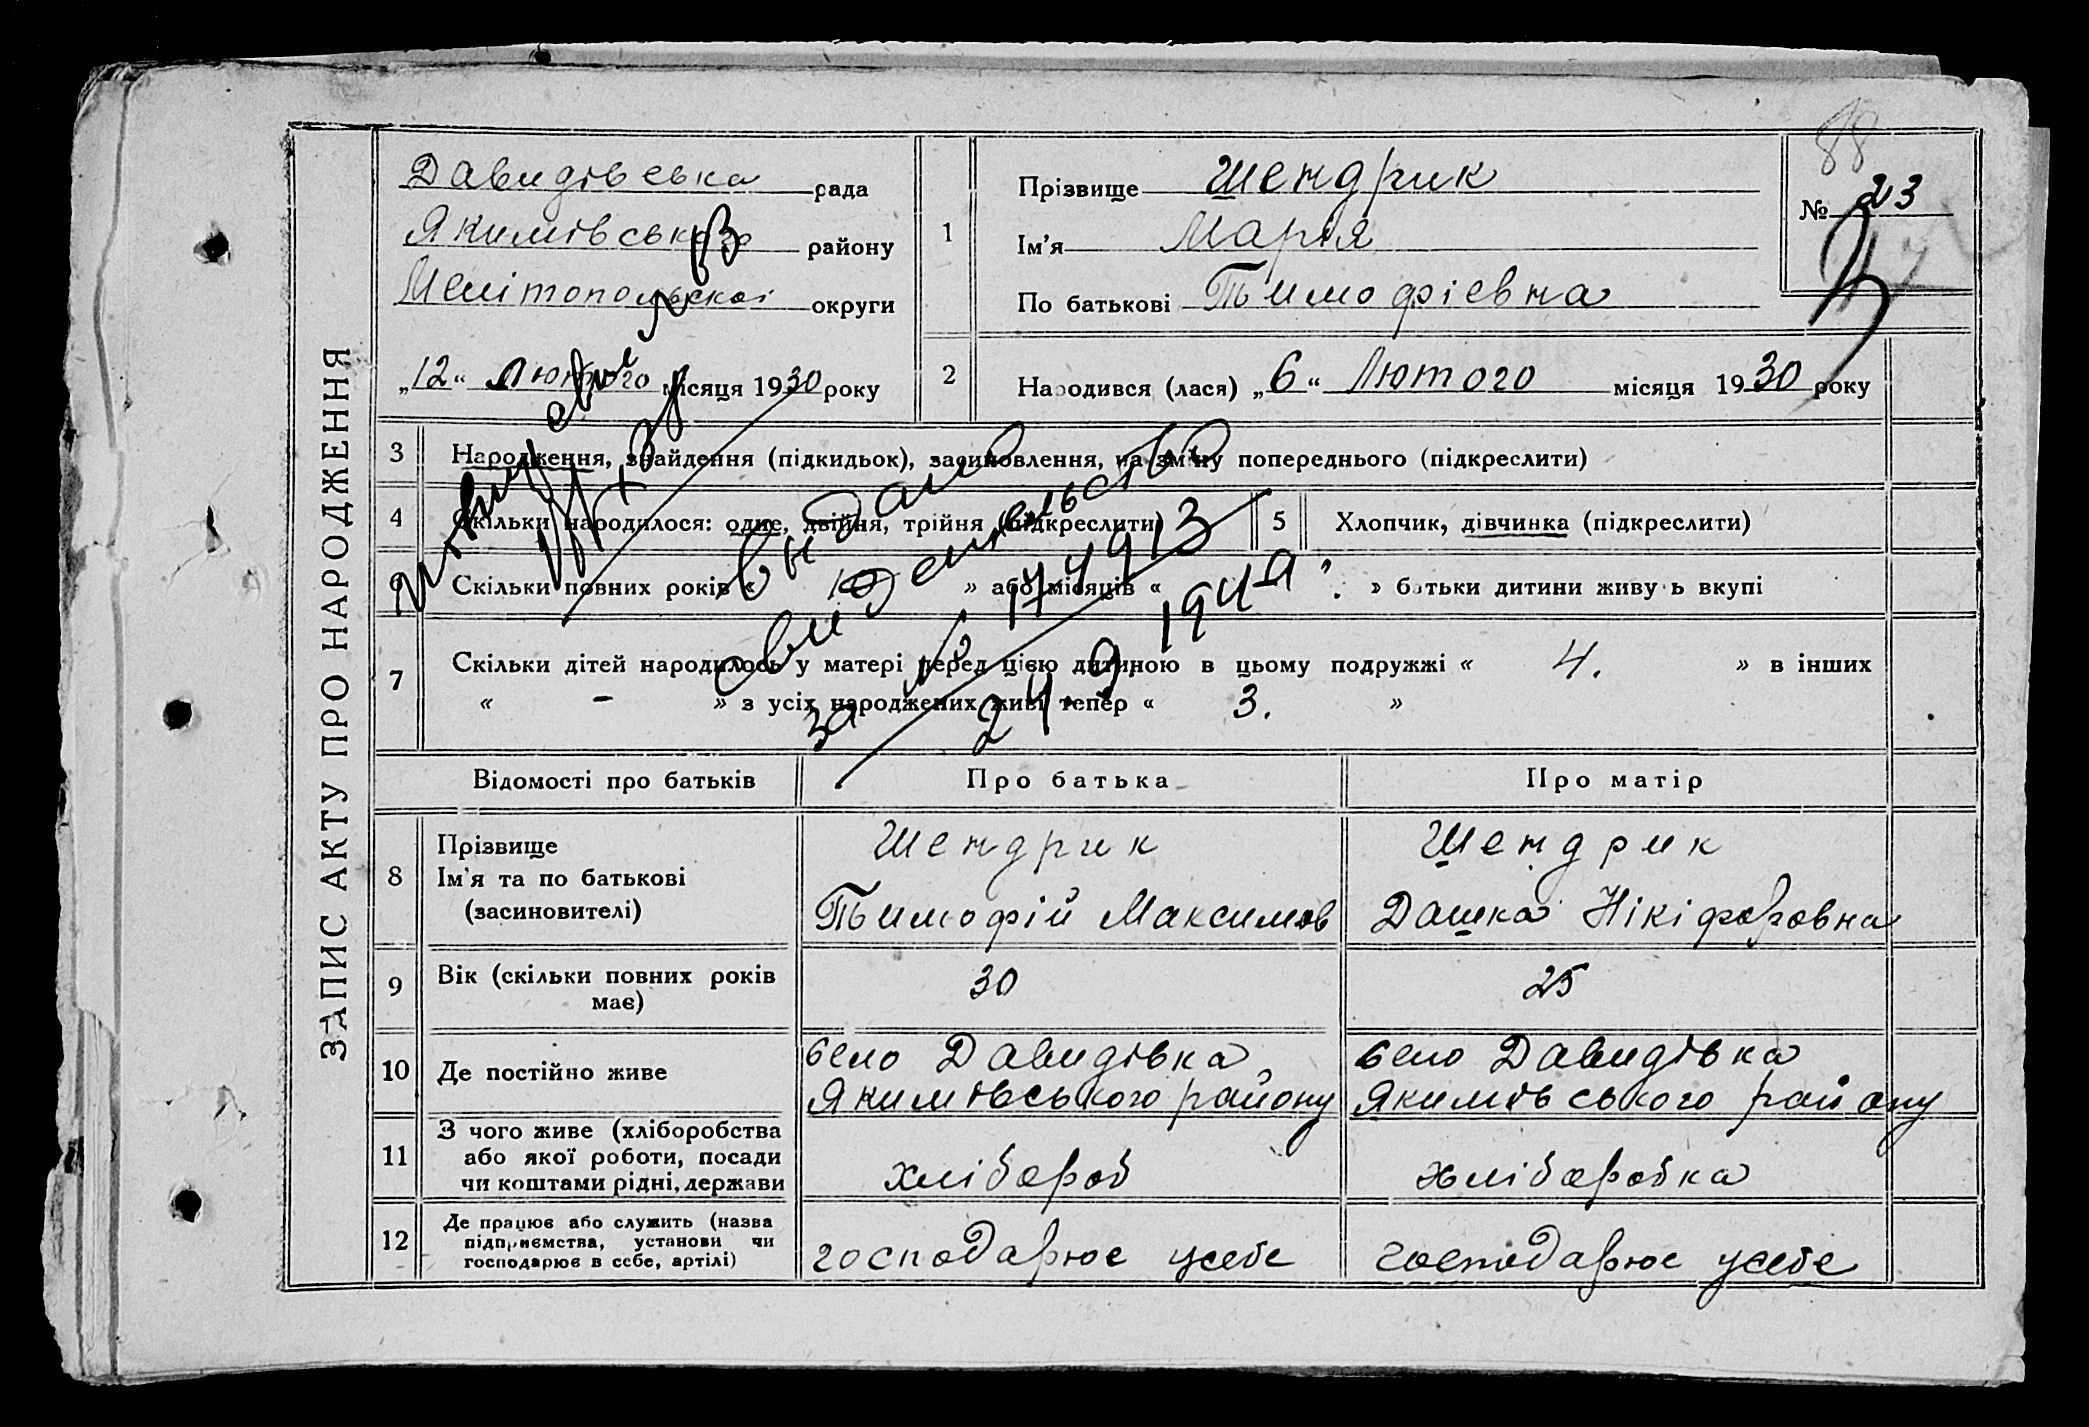 ЗАПИС АКТУ ПРО НАРОДЖЕННЯ
88
Давидівська рада
Якимівського району
Мелітопольскоі округи
„12“ Лютого місяця 1930 року
1
Прізвище Шендрик
Ім’я Марія
По батькові Тимофієвна
№ 23
2
Народився (лася) „6“ Лютого місяця 1930 року
3 Народження, знайдення (підкидьок), засиновлення, на зміну попереднього (підкреслити)
4 Скільки народилося: одне, двійня, трійня (підкреслити)
5 Хлопчик, дівчинка (підкреслити)
6 Скільки повних років « » або місяців « » батьки дитини живуть вкупі
7 Скільки дітей народилось у матері перед цією дитиною в цьому подружжі « 4. » в інших
« – » з усіх народжених живі тепер « 3. »
выдано
свидетельство
за № 174913
24.9 194
Відомості про батьків
Про батька
Про матір
8 Прізвище
Ім’я та по батькові
(засиновителі)
Шендрик
Тимофій Максимов
Шендрик
Дашка Нікіфоровна
9 Вік (скільки повних років
має)
30
25
10 Де постійно живе
село Давидівка
Якимівського району
село Давидівка
Якимівського району
11 З чого живе (хліборобства
або якої роботи, посади
чи коштами рідні, держави
хлібороб
хліборобка
12 Де працює або служить (назва
підприємства, установи чи
господарює в себе, артілі)
господарює усебе
господарює усебе